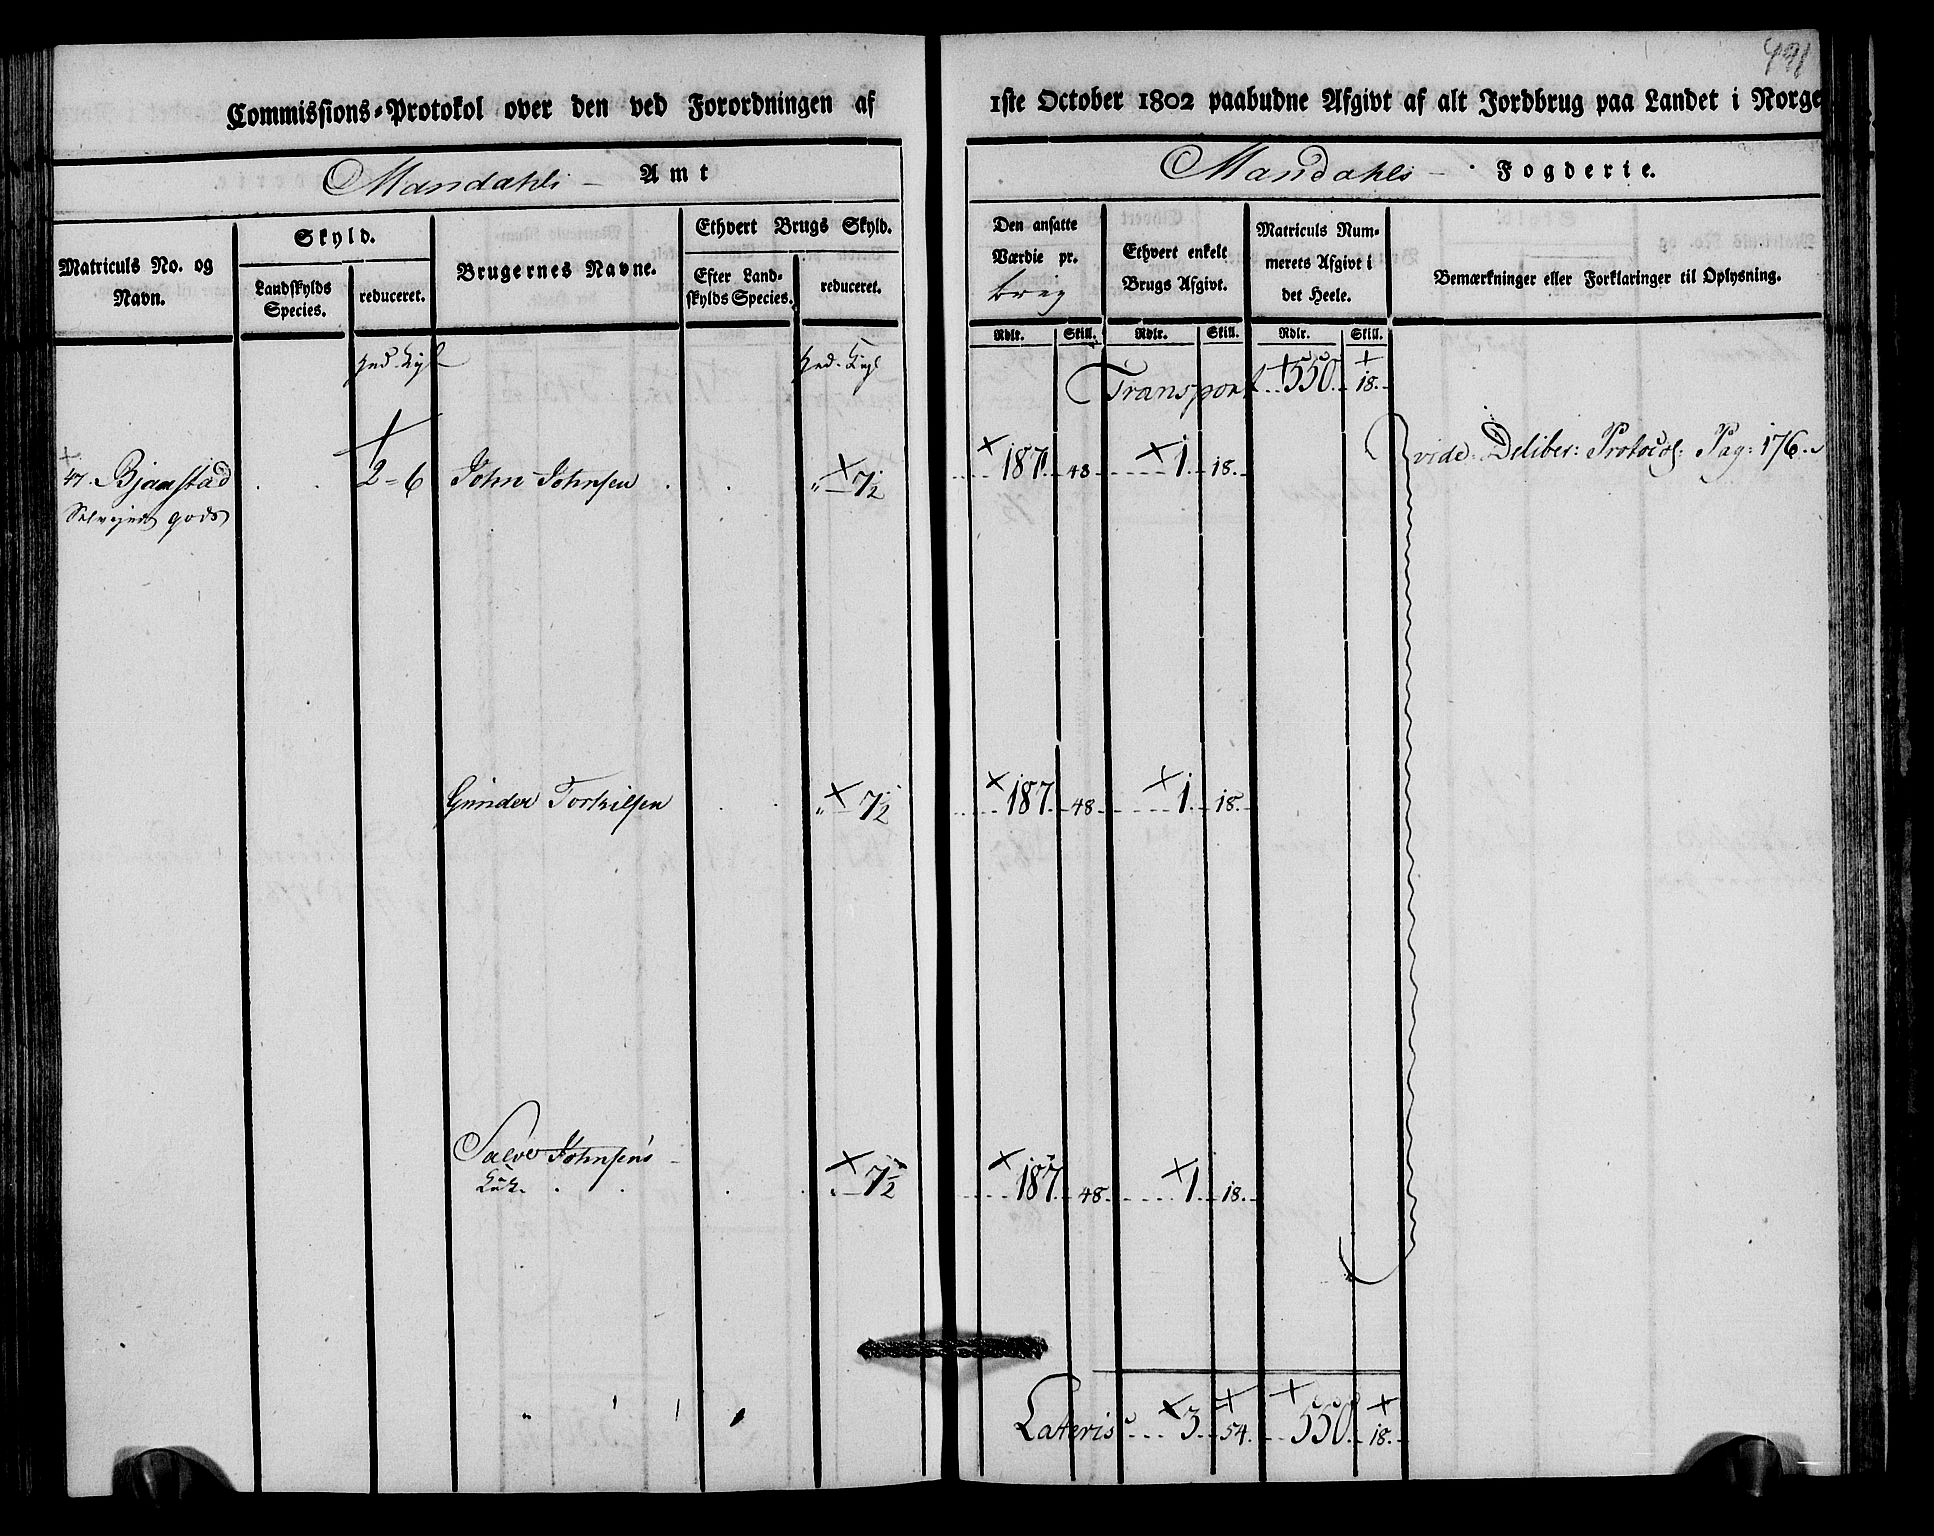 Commissions-Protokol over den ved Forordningen af 1ste October 1802 paabudne Afgivt af alt Jordbrug paa Landet i Norge
Mandahls Amt
Mandahls Fogderie.
Matriculs No. og Navn.
Skyld.
Landskylds Species.
reduceret.
Brugernes Navne.
Ethvert Brugs Skyld.
Efter Landskylds Species.
reduceret.
Den ansatte Værdie pr.
Ethvert enkelt Brugs Afgivt.
Matriculs Nummerets Afgivt i det Heele.
Bemærkninger eller Forklaringer til Oplysning.
Rdlr. Skill. Rdlr. Skill. Rdlr. Skill.
Transport 550 18
47. Bjaastad 2-6 John Johnsen 7½ 187 48 1 18 vide Deliber: Protocol: Pag: 176
Selvejende gods
Gunder Torkilsen 7½ 187 48 1 18
Salve Johnsens 7½ 187 48 1 18
Lateris 3 54 550 18